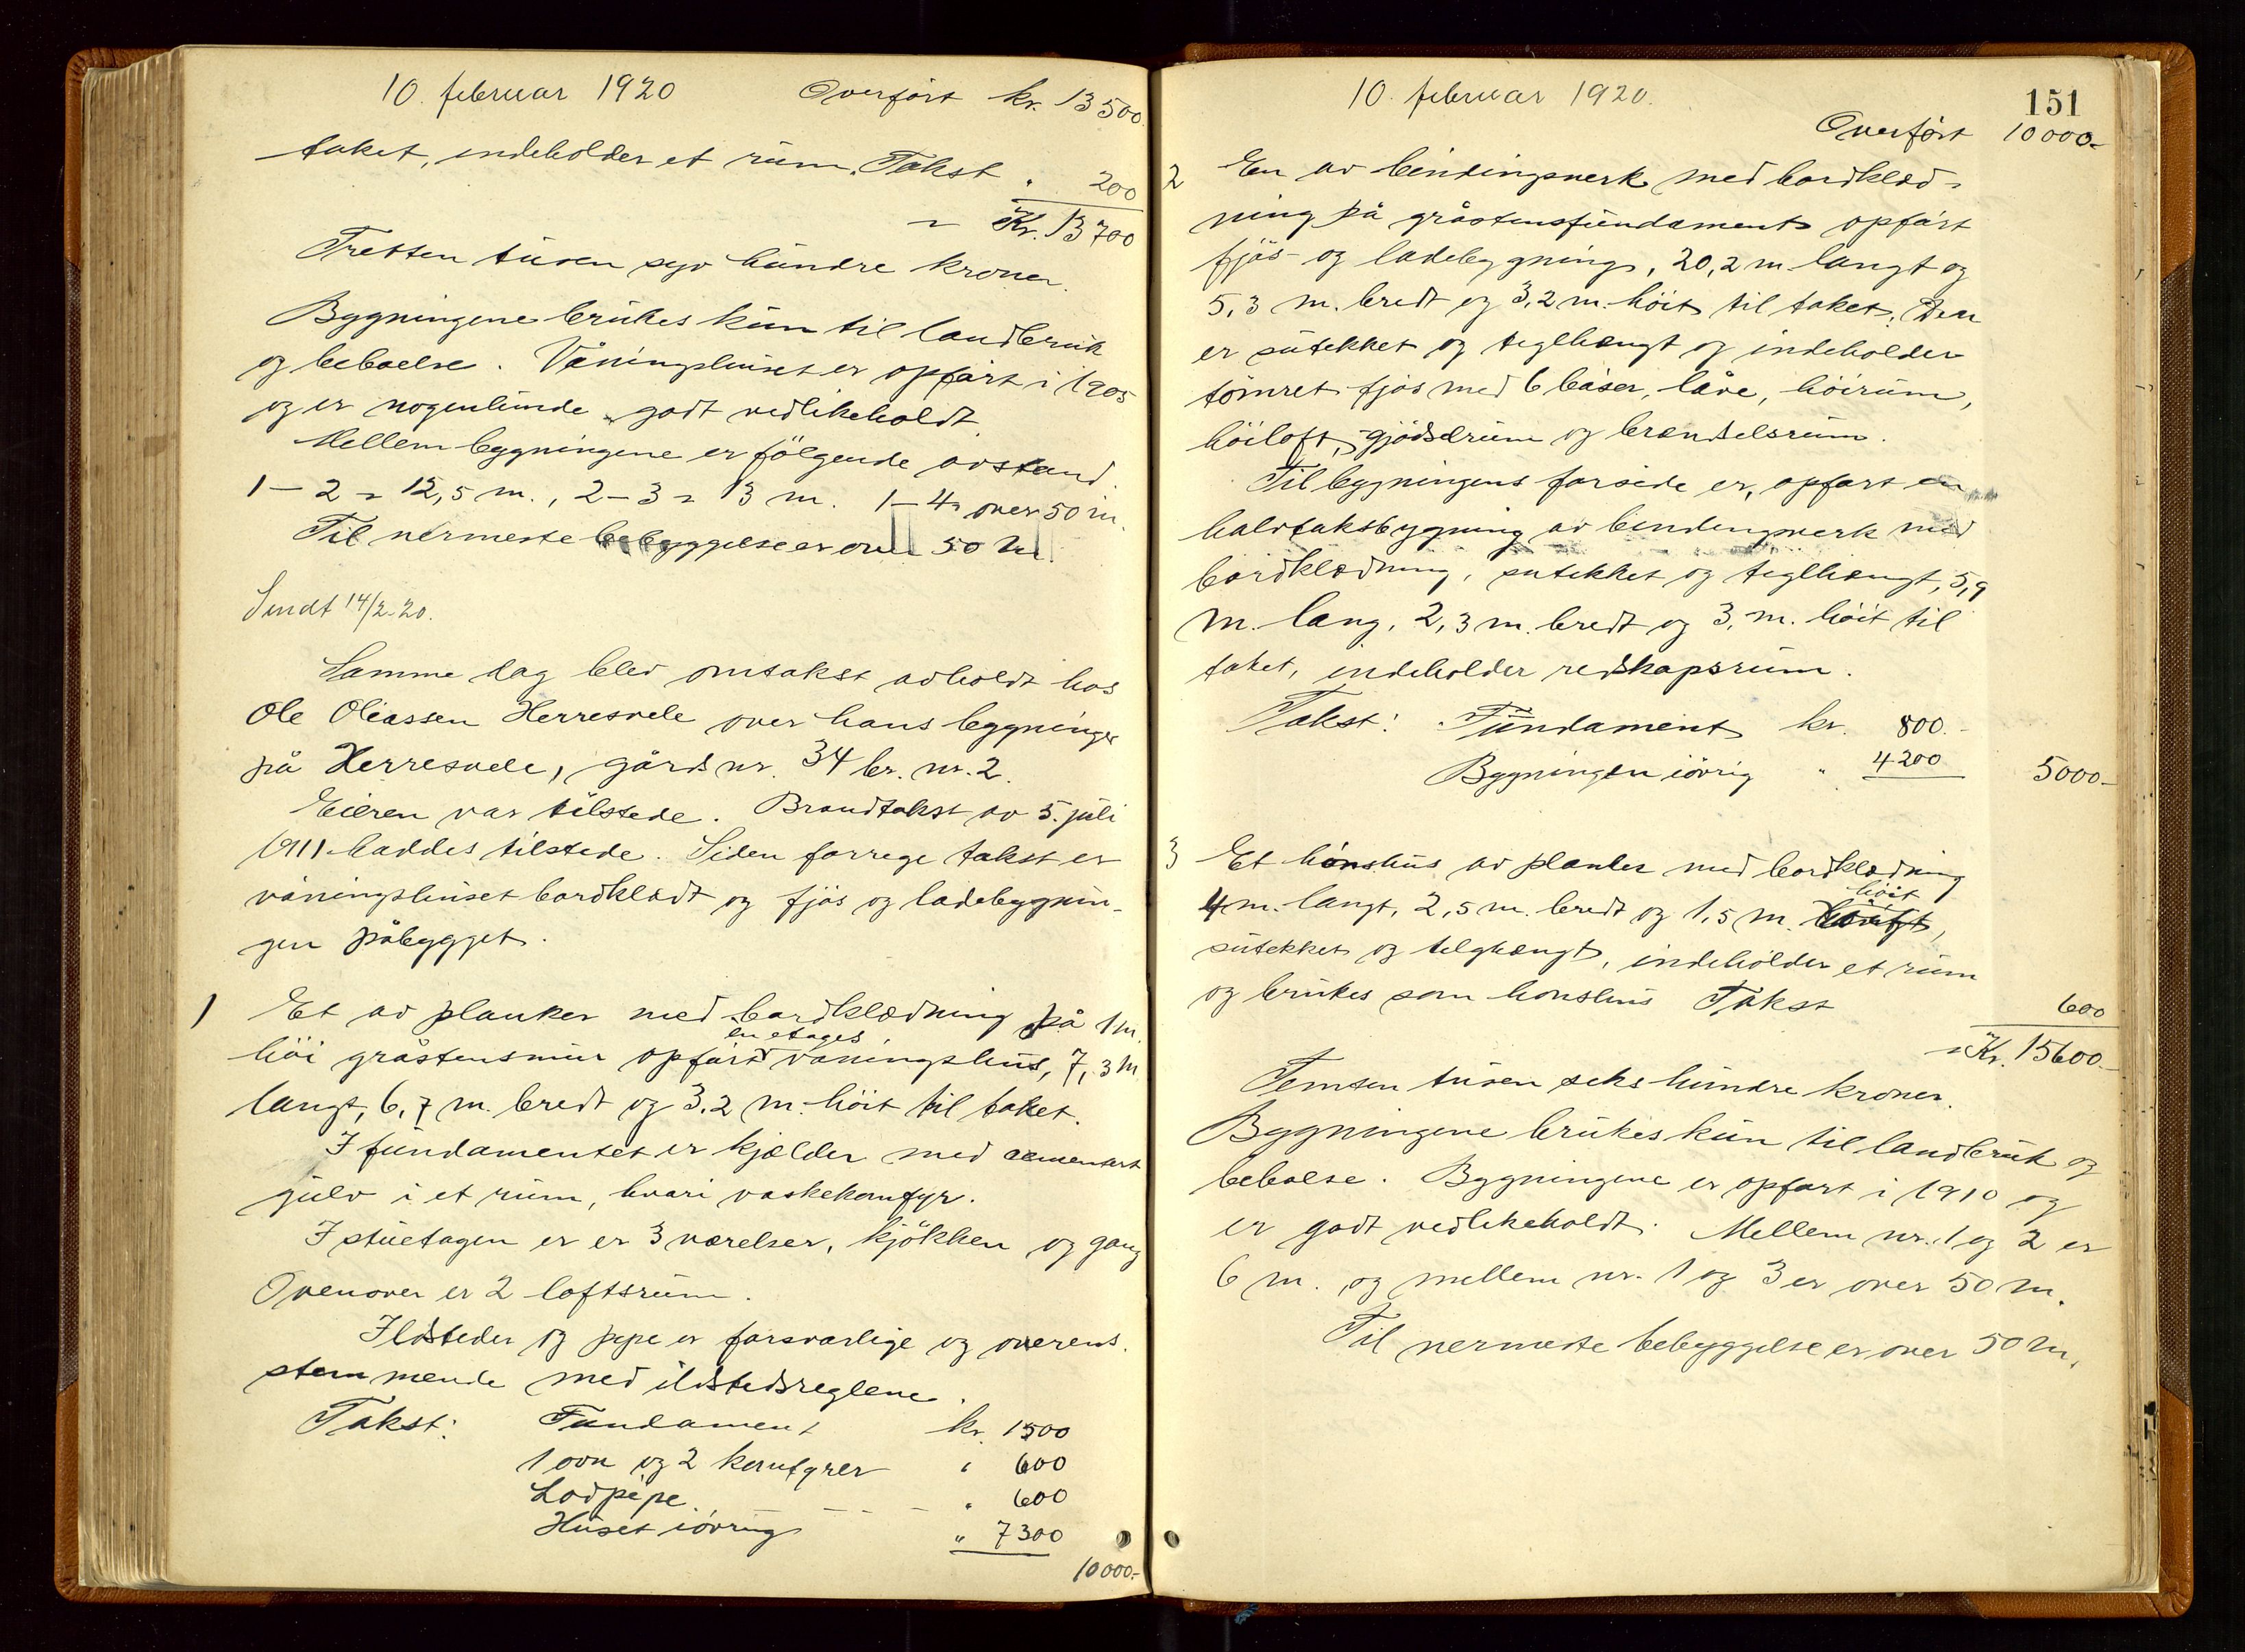 10. februar 1920 Overført kr. 13500.
taket, indeholder et rüm. Takst " 200
= Kr. 13700
Tretten tüsen syv hündre kroner.
Bygningene brükes kün til landbrük
og beboelse. Våningshüset er opført i 1905
og er nogenlünde godt vedlikeholdt
Mellem bygningene er følgende avstand.
1 – 2 = 12,5 m., 2 – 3 = 13 m. 1 – 4 = over 50 m.
Til nermeste bebyggelse er over 50 m.
Sendt 14/2-20.
Samme dag blev omtakst avholdt hos
Ole Oliassen Herresvele over hans bygninger
på Herresvele, gårds nr. 34 br. nr. 2.
Eieren var tilstede. Brandtakst av 5. jüli
1911 haddes tilstede. Siden forrege takst er
våningshüset bordklædt og fjös og ladebygnin-
gen påbygget.
1 Et av planker med bordklædning på 1 m.
en etages
höi gråstensmür opført våningshüs, 7,3 m
langt, 6,7 m. bredt og 3,2 m. höit til taket.
I fündamentet er kjælder med cementert
gülv i et rüm, hvari vaskekomfyr.
I stüetagen er er 3 værelser, kjökken og gang
Ovenover er 2 loftsrüm.
Ildsteder og pipe er forsvarlige og overens-
stemmende med ildstedsreglene.
Takst: Fundament kr. 1500
1 ovn og 2 komfyrer " 600
Lodpipe " 600
Hüset iövrig " 7300
10000.-
10. februar 1920. 151
Overført 10000-
2 En av bindingsverk med bordklæd-
ning på gråstensfündament opført
fjös- og ladebygning, 20,2 m. langt og
5,3 m. bredt og 3,2 m. höit til taket. Den
er sütekket og teglhængt og indeholder
tömret fjös med 6 båser, låve, höirüm,
höiloft, gjödselrüm og brendselsrüm.
Til bygningens forside er, opført en
halvtaksbygning av bindingsverk med
bordklædning, sutekket og teglhængt, 5,9
m. lang, 2,3 m. bredt og 3, m. höit til
taket, indeholder redskapsrüm.
Takst: Fündament kr. 800.-
Bygningen iövrig " 4200 5000-
3 Et hönshüs av planker med bordklædning
höit
4 m. langt, 2,5 m. bredt og 1,5 m.
sütekket og telghængt, indeholder et rüm
og brükes som honshüs Takst 600
= Kr. 15600.-
Femten tüsen seks hündre kroner.
Bygningene brükes kün til landbrük og
beboelse. Bygningene er opført i 1910 og
er godt vedlikeholdt. Mellem nr. 1 og 2 er
6 m. og mellem nr. 1 og 3 er over 50 m.
Til nermeste bebyggelse er over 50 m.